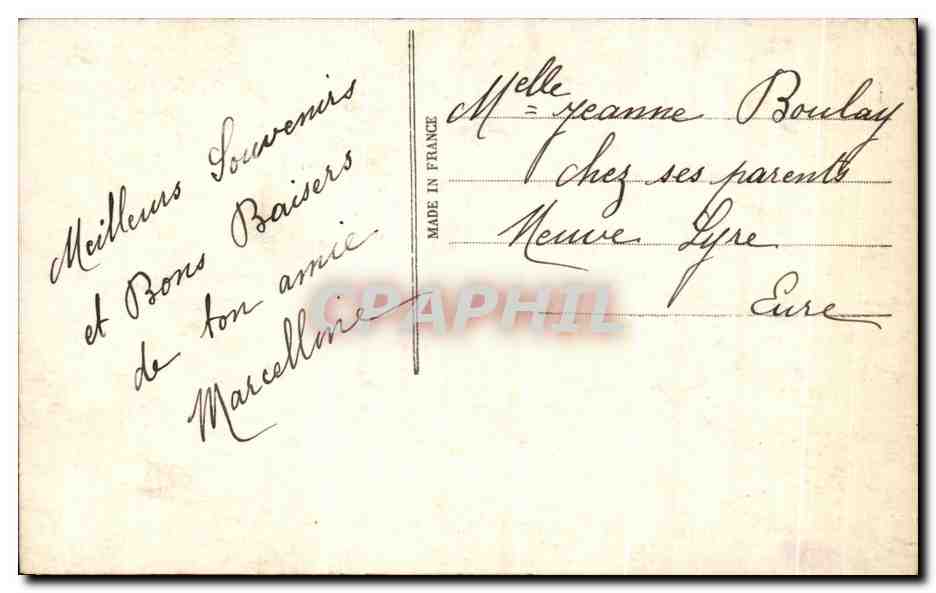 Meilleurs Souvenirs
et Bons Baisers
de ton amie
Marcelline
MADE IN FRANCE
Melle Jeanne Boulay
chez ses parents
Neuve Lyre
Eure
CPAPHIL